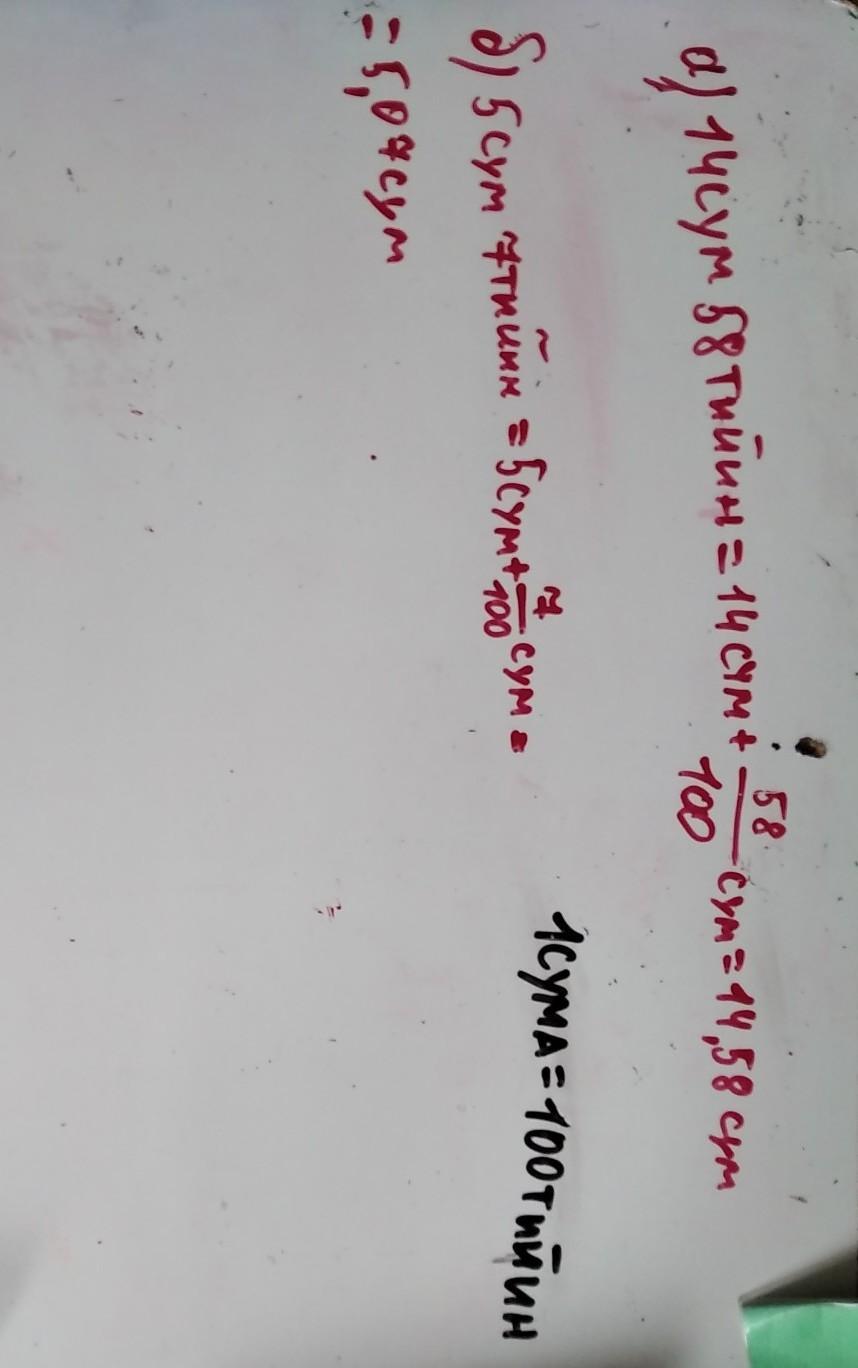 а) 14 сум 58 тийин = 14 сум + 58/100 сум = 14,58 сум
б) 5 сум 7 тийин = 5 сум + 7/100 сум =
= 5,07 сум
1 сумА = 100 тийин